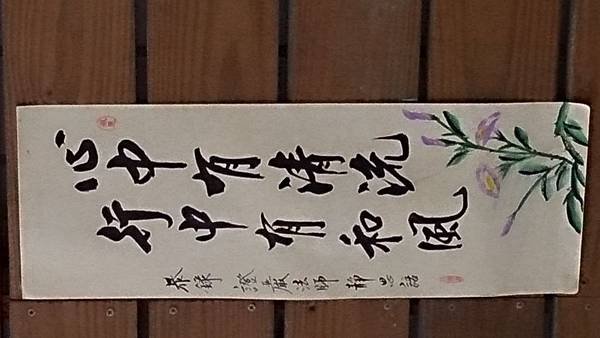 心中有清流
行中有和風
恭錄 證嚴法師 靜思語